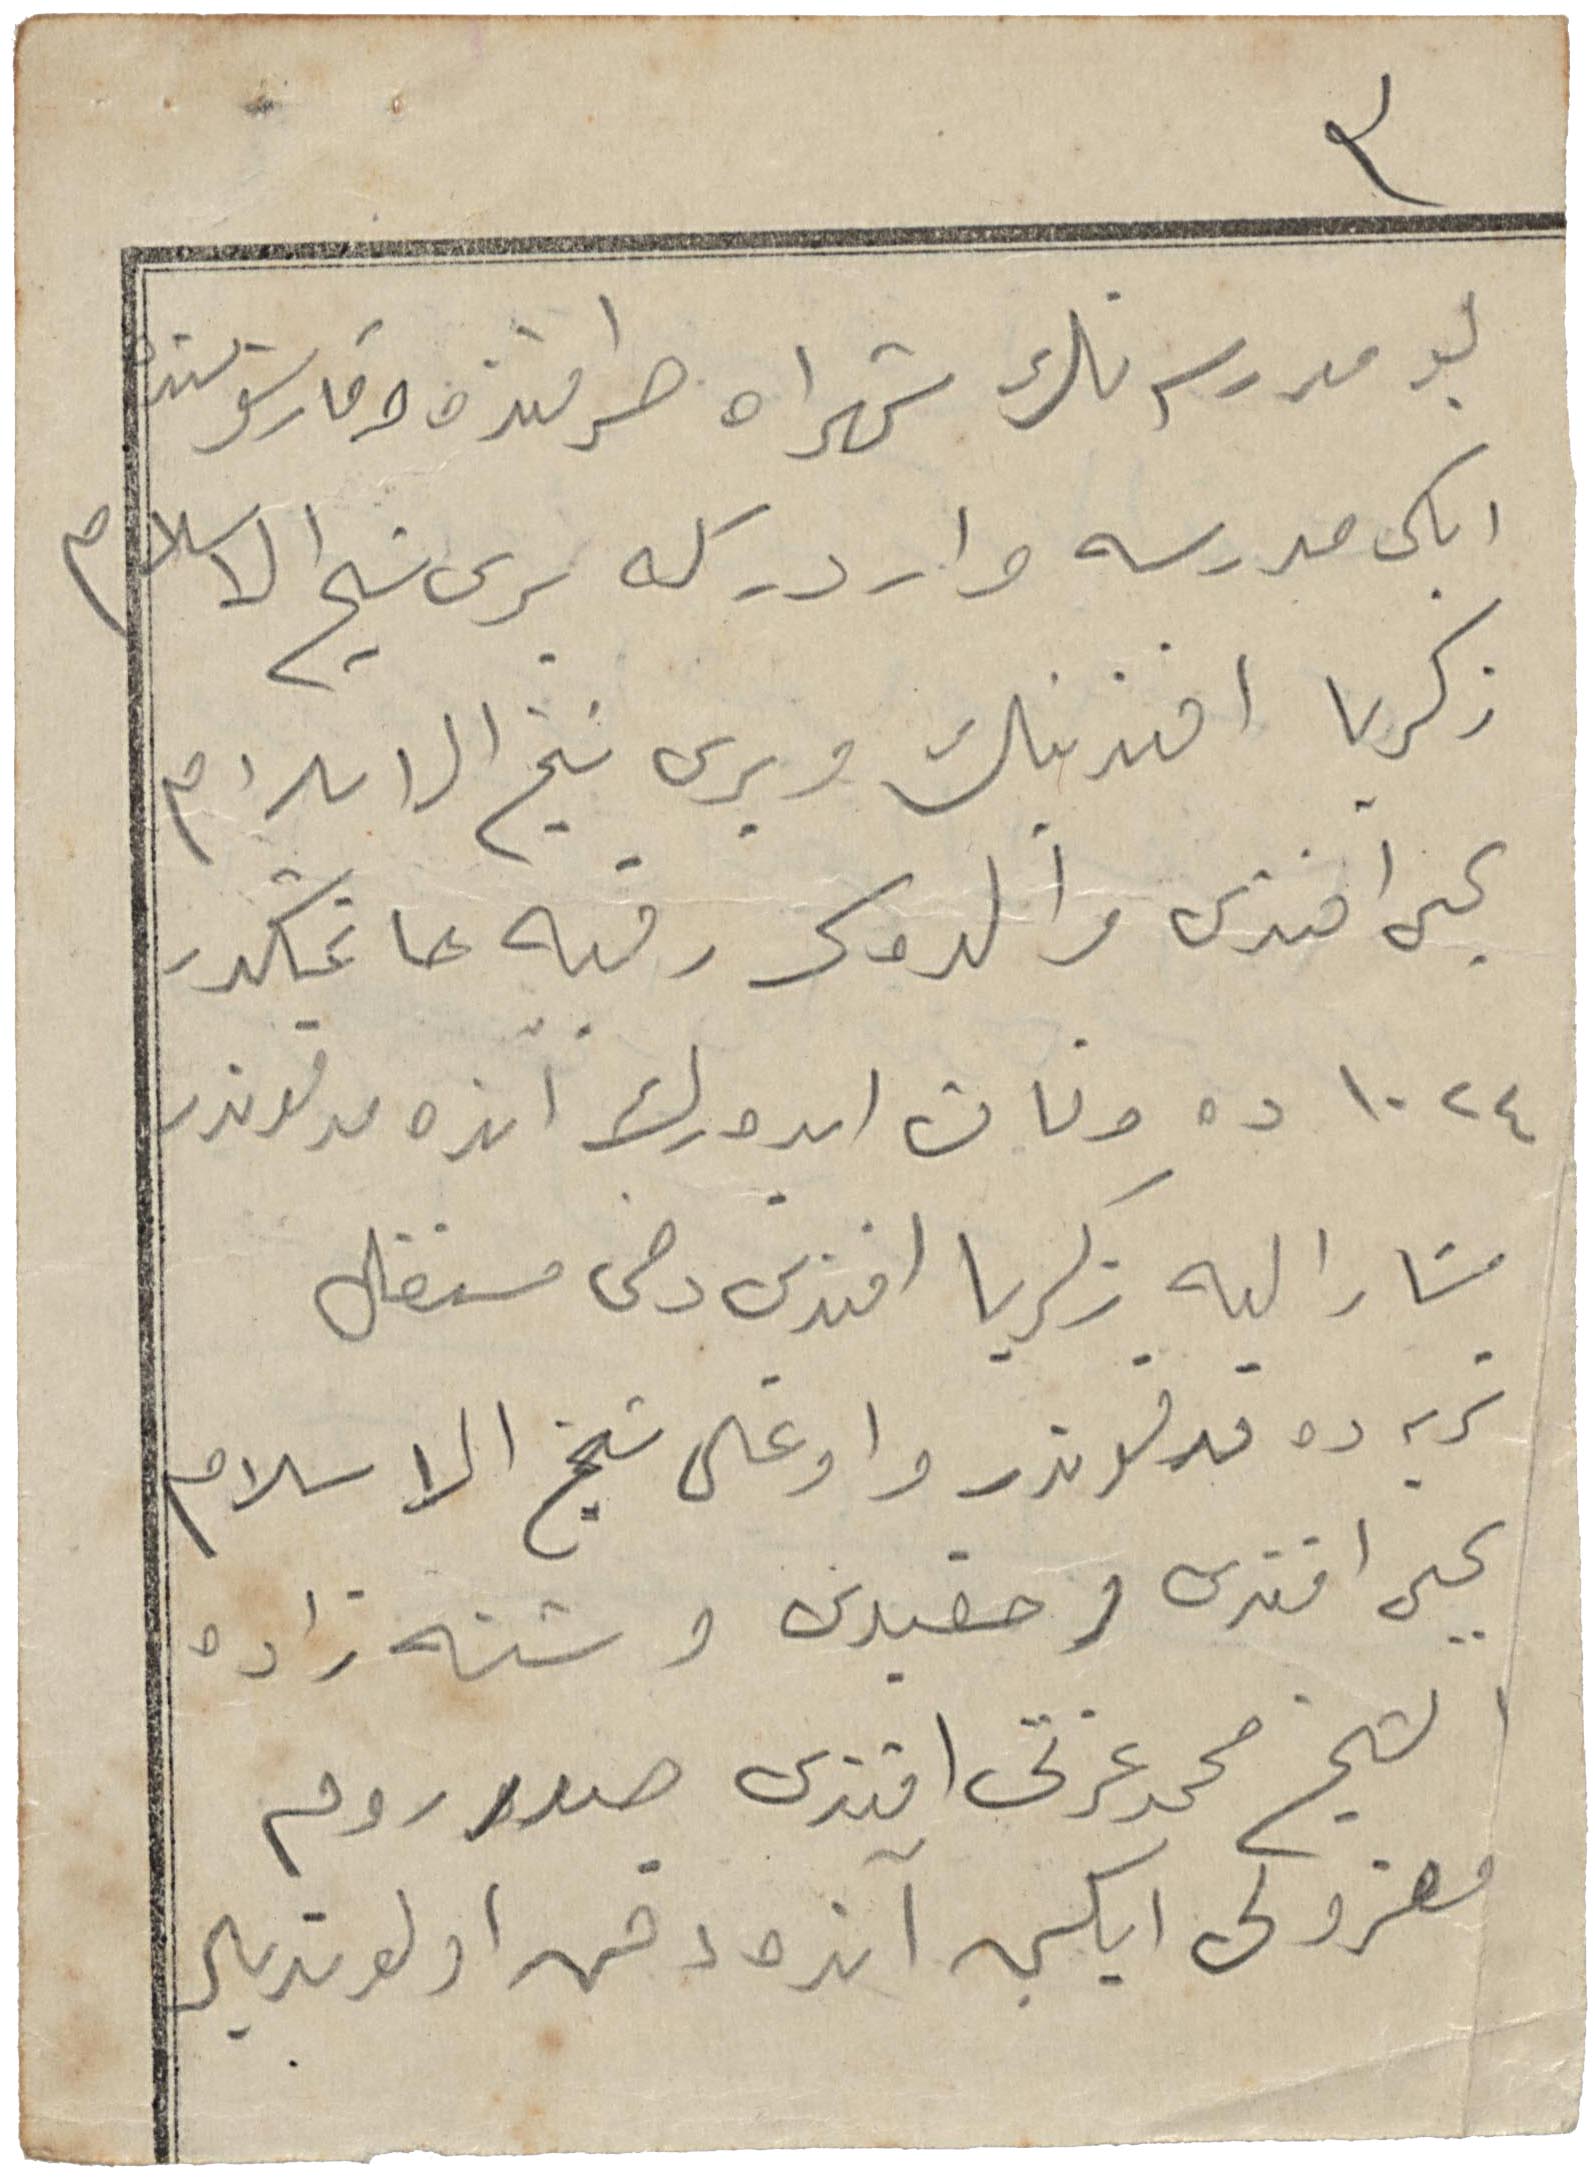 ٣
بو مدرسه نك شهراه طرفنده و قارشوسنده
ایكی مدرسه واردركه بری شیخ الاسلام
زكریا افندینك و بری شیخ الاسلام
یحیی افندی والده سی رقیه خاتونكدر
١٠٢٤ ده وفات ایدەرك آنده مدفوندر
مشار الیه زكریا افندی دخی مستقل
تربه ده مدفوندر و اوغلی شیخ الاسلام
یحیی افندی و حفیدی و شته زاده
الشیخ محمد عزتی افندی صدر روم
معزولی ایكن آنده دفن اولوندیلر